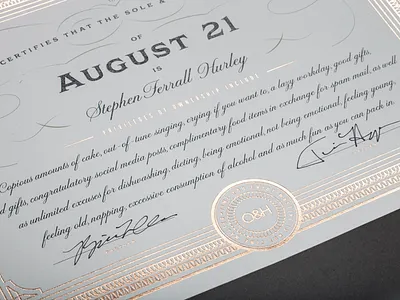 CERTIFIES THAT THE SOLE
OF
AUGUST 21
IS
Stephen Ferrall Hurley
PRIVILEGES OF OWNERSHIP INCLUDE
Copious amounts of cake, out-of-tune singing, crying if you want to, a lazy workday, good gifts,
d gifts, congratulatory social media posts, complimentary food items in exchange for spam mail, as well
as unlimited excuses for dishwashing, dieting, being emotional, not being emotional, feeling young,
feeling old, napping, excessive consumption of alcohol and as much fun as you can pack in
O&H